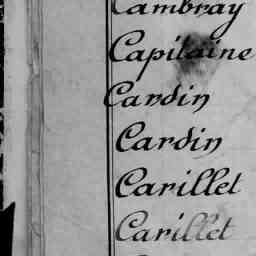 Cambray
Capitaine
Cardin
Cardin
Carillet
Carillet